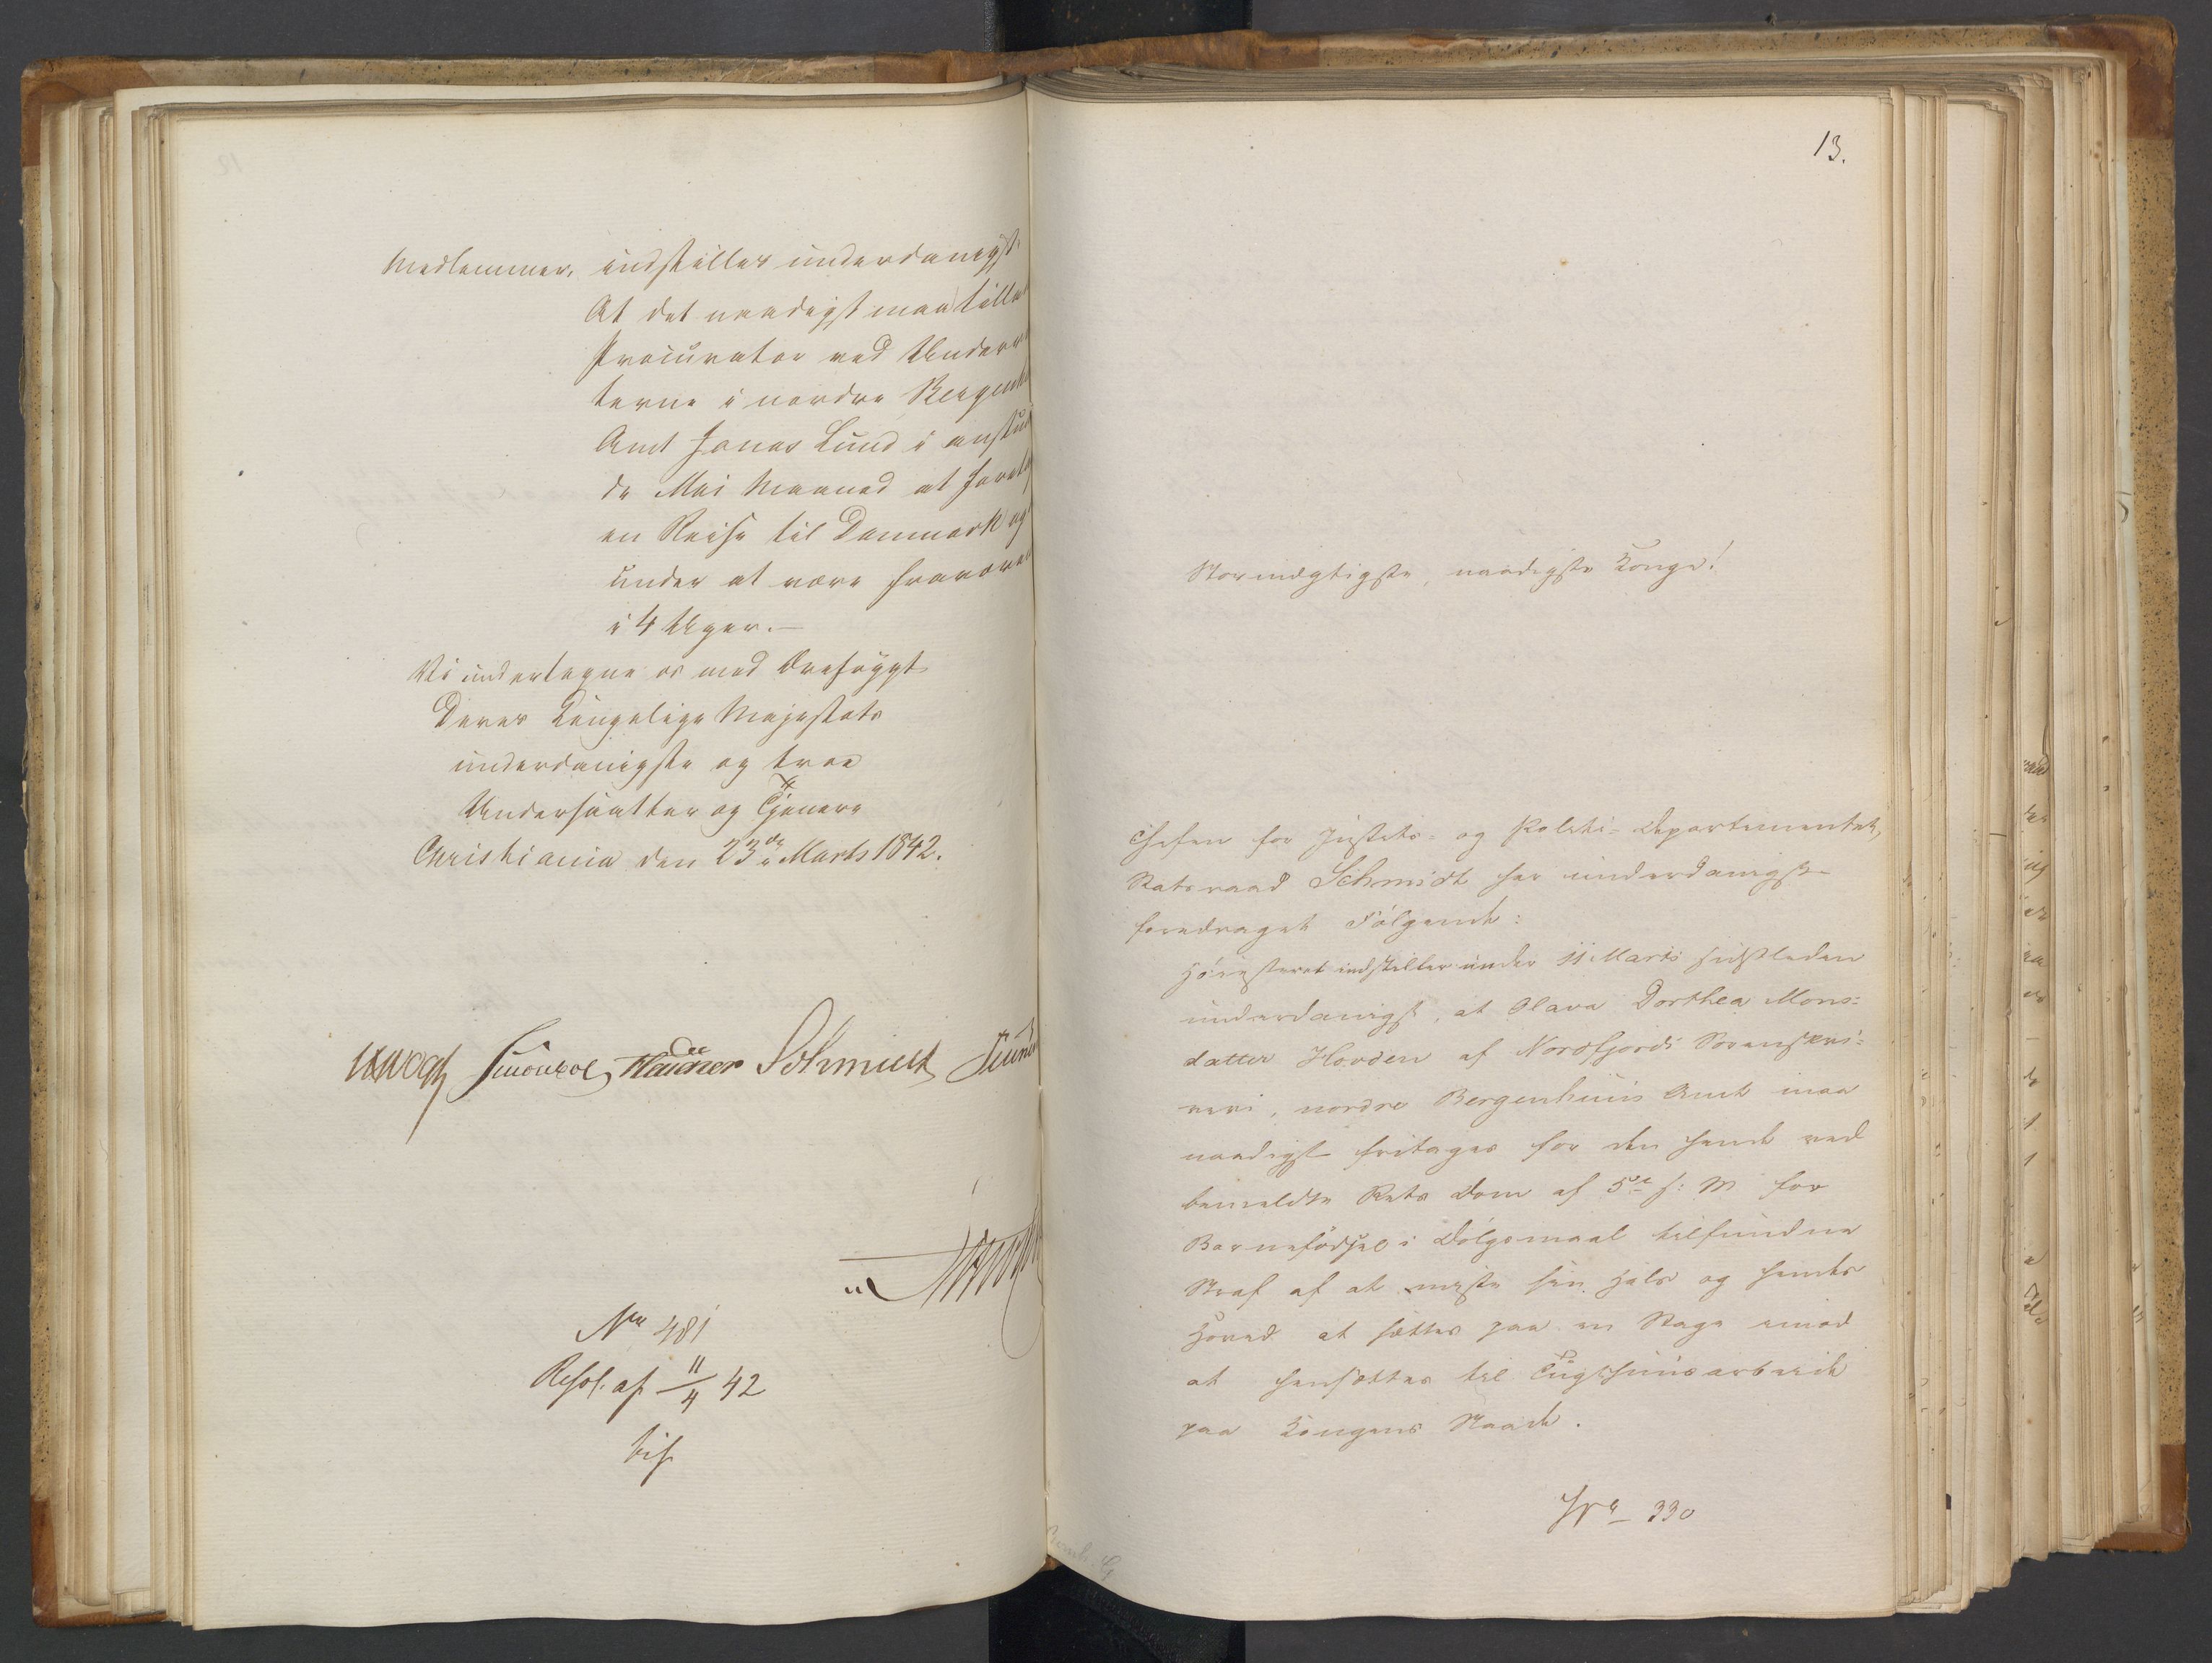 Medlemmer, indstilles underdanigst:
At det naadigst maa tilla
Procurator ved Underre
terne i nordre Bergenh
Amt Jonas Lund i anstun
de Mai Maaned at foreta
en Reise til Danmark og
under at være fraværen
i 4 Uger.—
Vi undertegne os med Ærefrygt
Deres Kongelige Majestæts
underdanigste og troe
Undersaatter og Tjenere
Christiania den 23de Marts 1842.
Vogt Schmidt
No 481
Resol. af 11/4 42
13.
Stormægtigste, naadigste Konge!
Chefen for Justits- og Politi-Departementet,
Statsraad Schmidt har underdanigst
foredraget Følgende:
Høiesteret indstiller under 11 Marts sidstleden
underdanigst, at Olava Dorthea Mons-
datter Hovden af Nordfjords Sorenskri-
veri, nordre Bergenhuus Amt maa
naadigst fritages for den hende ved
bemeldte Rets Dom af 5te s: M for
Barnefødsel i Dølgsmaal tilfundne
Straf af at miste sin Hals og hendes
Hoved at sættes paa en Stage imod
at hensættes til Tugthuusarbeide
paa Kongens Naade.
No 330